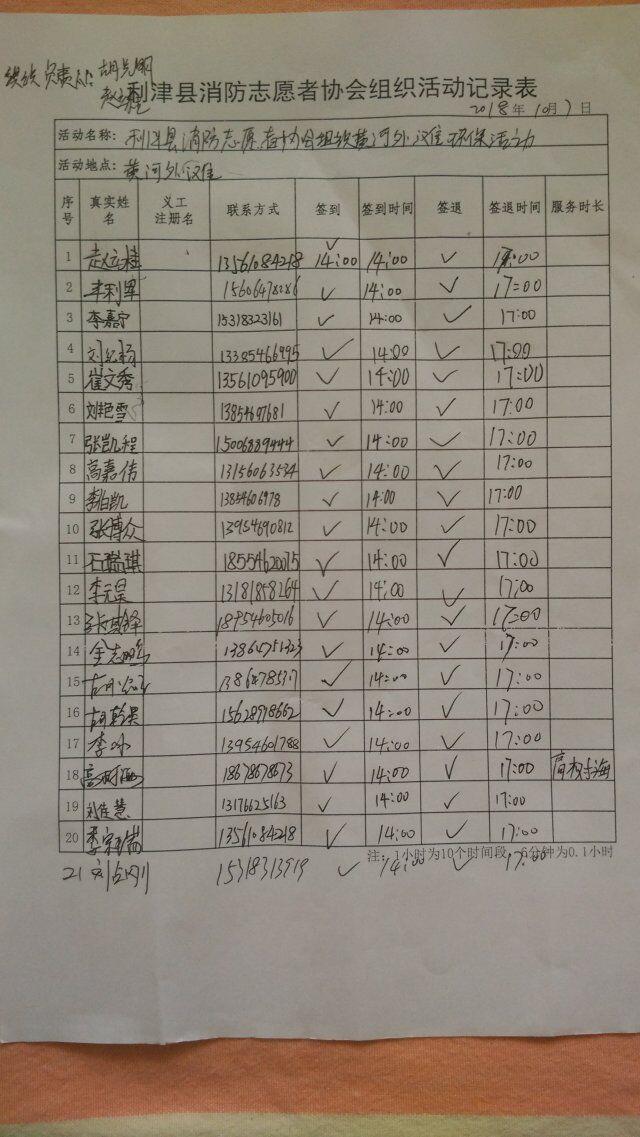 组织负责人: 胡克刚
赵运桂
利津县消防志愿者协会组织活动记录表
2018年10月7日
活动名称: 利津县消防志愿者协会组织黄河外滩环保活动
活动地点: 黄河外滩
序号 真实姓名 义工注册名 联系方式 签到 签到时间 签退 签退时间 服务时长
1 赵运桂 13561084218 ✓ 14:00 14:00 ✓ 17:00
2 15606478286 ✓ 14:00 ✓ 17:00
3 李嘉宁 15318323161 ✓ 14:00 ✓ 17:00
4 13385466995 ✓ 14:00 ✓ 17:00
5 崔文秀 13561095900 ✓ 14:00 ✓ 17:00
6 刘艳雪 13854697681 ✓ 14:00 ✓ 17:00
7 张凯程 15006889444 ✓ 14:00 ✓ 17:00
8 高嘉伟 13156063534 ✓ 14:00 ✓ 17:00
9 李柏凯 13854606978 ✓ 14:00 ✓ 17:00
10 张博众 13954690812 ✓ 14:00 ✓ 17:00
11 石瑞琪 18554620075 ✓ 14:00 ✓ 17:00
12 李元昊 13181858264 ✓ 14:00 ✓ 17:00
13 18954605016 ✓ 14:00 ✓ 17:00
14 ✓ 14:00 ✓ 17:00
15 ✓ 14:00 ✓ 17:00
16 胡乾昊 15628978662 ✓ 14:00 ✓ 17:00
17 李冰 13954601788 ✓ 14:00 ✓ 17:00
18 18678678673 ✓ 14:00 ✓ 17:00
19 刘佳慧 13176625163 ✓ 14:00 ✓ 17:00
20 李宗瑞 13561084218 ✓ 14:00 ✓ 17:00
注: 1小时为10个时间段, 6分钟为0.1小时
21 刘占刚 15318313919 ✓ 14:00 ✓ 17:00